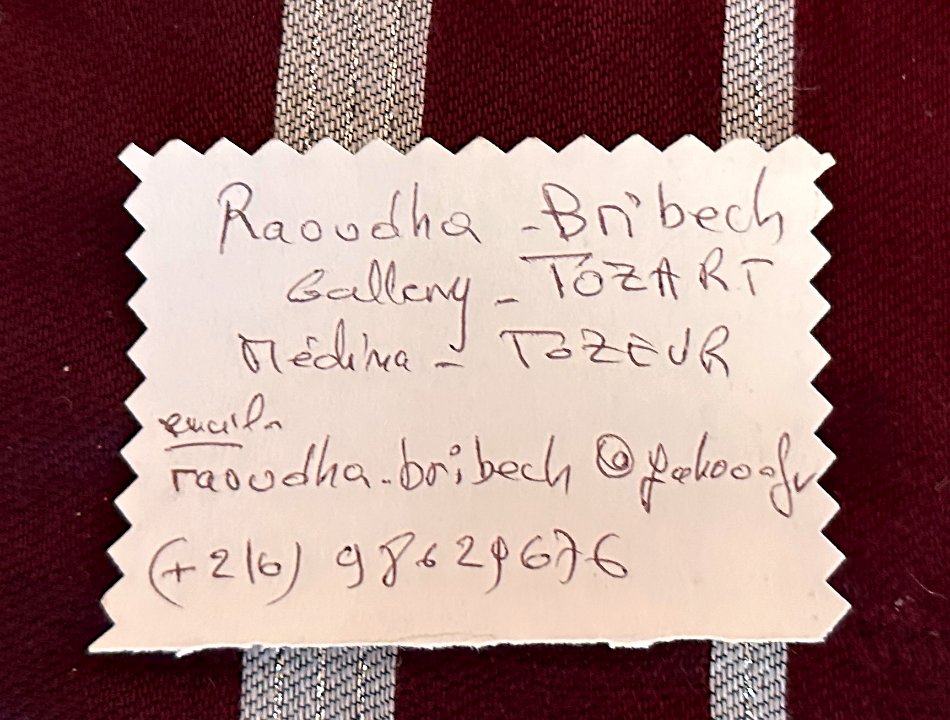 Raoudha - Bribech
Gallery - TOZART
Médina - TOZEUR
email
raoudha.bribech @yahoo.fr
(+216) 98629676